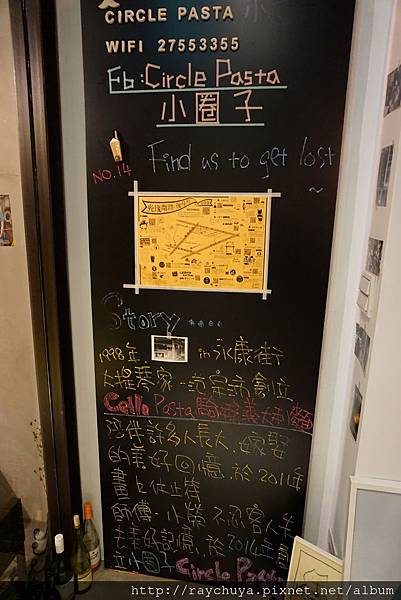 CIRCLE PASTA 小
WIFI 27553355
Fb:Circle Pasta
小圈子
Find us to get lost
~
NO.14
Story....
1998年 in 永康街
大提琴家 范宗沛創立
Cello Pasta 義大利麵
陪伴許多人長大、嫁娶
的美好回憶,於2011年
畫上休止符
師傅 小 不忍客人
美好記憶,於2014年
立小圈子 Circle Pasta
http://raychuya.pixnet.net/album